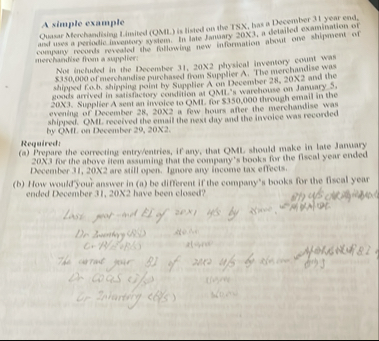 A simple example
Quasar Merchandising Limited (QML) is listed on the TSX, has a December 31 year end,
and uses a periodic inventory system. In late January 20X3, a detailed examination of
company records revealed the following new information about one shipment of
merchandise from a supplier:
Not included in the December 31, 20X2 physical inventory count was
$350,000 of merchandise purchased from Supplier A. The merchandise was
shipped f.o.b. shipping point by Supplier A on December 28, 20X2 and the
goods arrived in satisfactory condition at QML's warehouse on January 5,
20X3. Supplier A sent an invoice to QML for $350,000 through email in the
evening of December 28, 20X2 a few hours after the merchandise was
shipped. QML received the email the next day and the invoice was recorded
by QML on December 29, 20X2.
Required:
(a) Prepare the correcting entry/entries, if any, that QML should make in late January
20X3 for the above item assuming that the company's books for the fiscal year ended
December 31, 20X2 are still open. Ignore any income tax effects.
(b) How would your answer in (a) be different if the company's books for the fiscal year
ended December 31, 20X2 have been closed?
Last year-end EI of 20X1 u/s by
Dr Inventory (B/S)
Cr
The current year BI of 20X2 u/s by
Dr COGS
Cr Inventory (B/S)